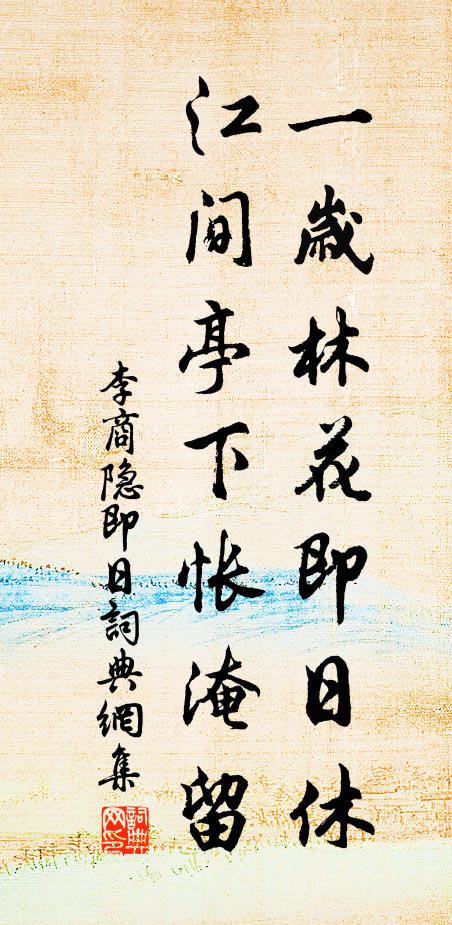 一歲林花即日休
江间亭下怅淹留
李商隐即日詞典網集
詞典网印